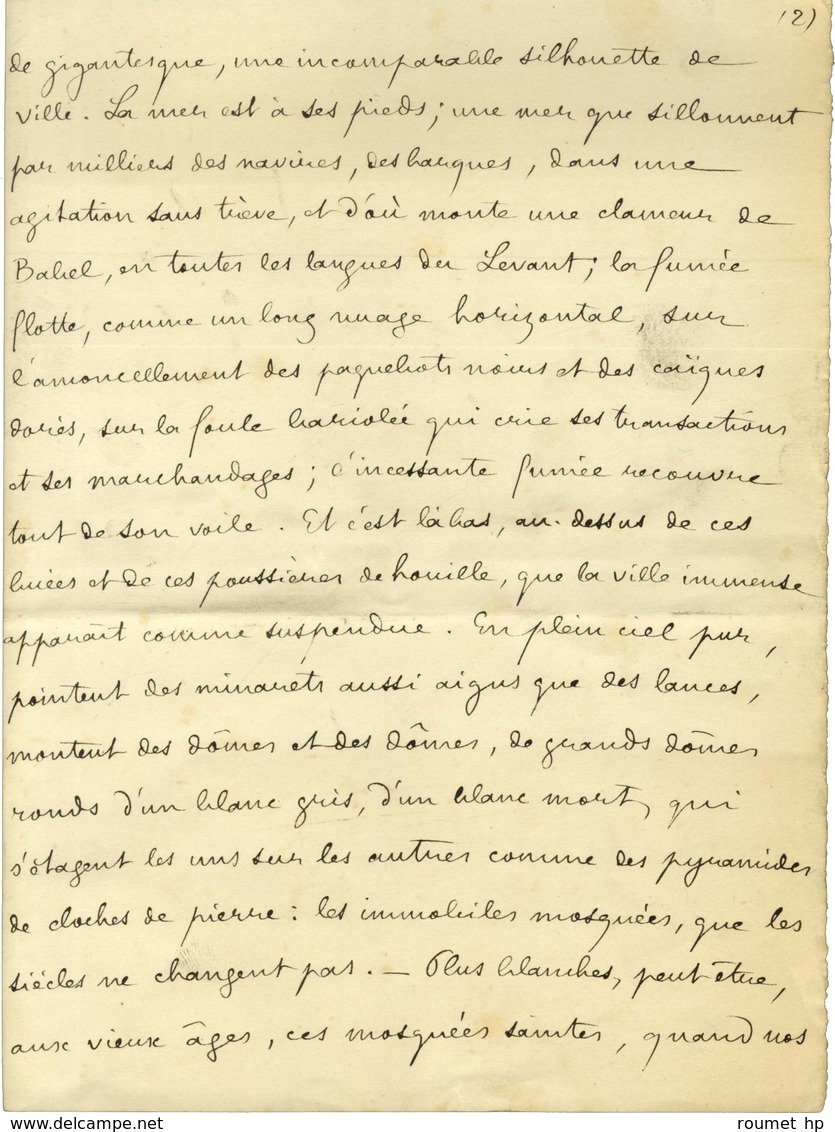 (2)
de gigantesque, une incomparable silhouette de
ville. La mer est à ses pieds ; une mer que sillonnent
par milliers des navires, des barques, dans une
agitation sans trève, et d'où monte une clameur de
Babel, en toutes les langues du Levant ; la fumée
flotte, comme un long nuage horizontal, sur
l'amoncellement des paquebots noirs et des caïques
dorés, sur la foule bariolée qui crie ses transactions
et ses marchandages ; l'incessante fumée recouvre
tout de son voile. Et c'est là bas, au-dessus de ces
buées et de ces poussières de houille, que la ville immense
apparaît comme suspendue. En plein ciel pur,
pointent des minarets aussi aigus que des lances,
montent des dômes et des dômes, de grands dômes
ronds d'un blanc gris, d'un blanc mort, qui
s'étagent les uns sur les autres comme des pyramides
de cloches de pierre : les immobiles mosquées, que les
siècles ne changent pas. — Plus blanches, peut-être,
aux vieux âges, ces mosquées saintes, quand nos
www.delcampe.net
roumet hp